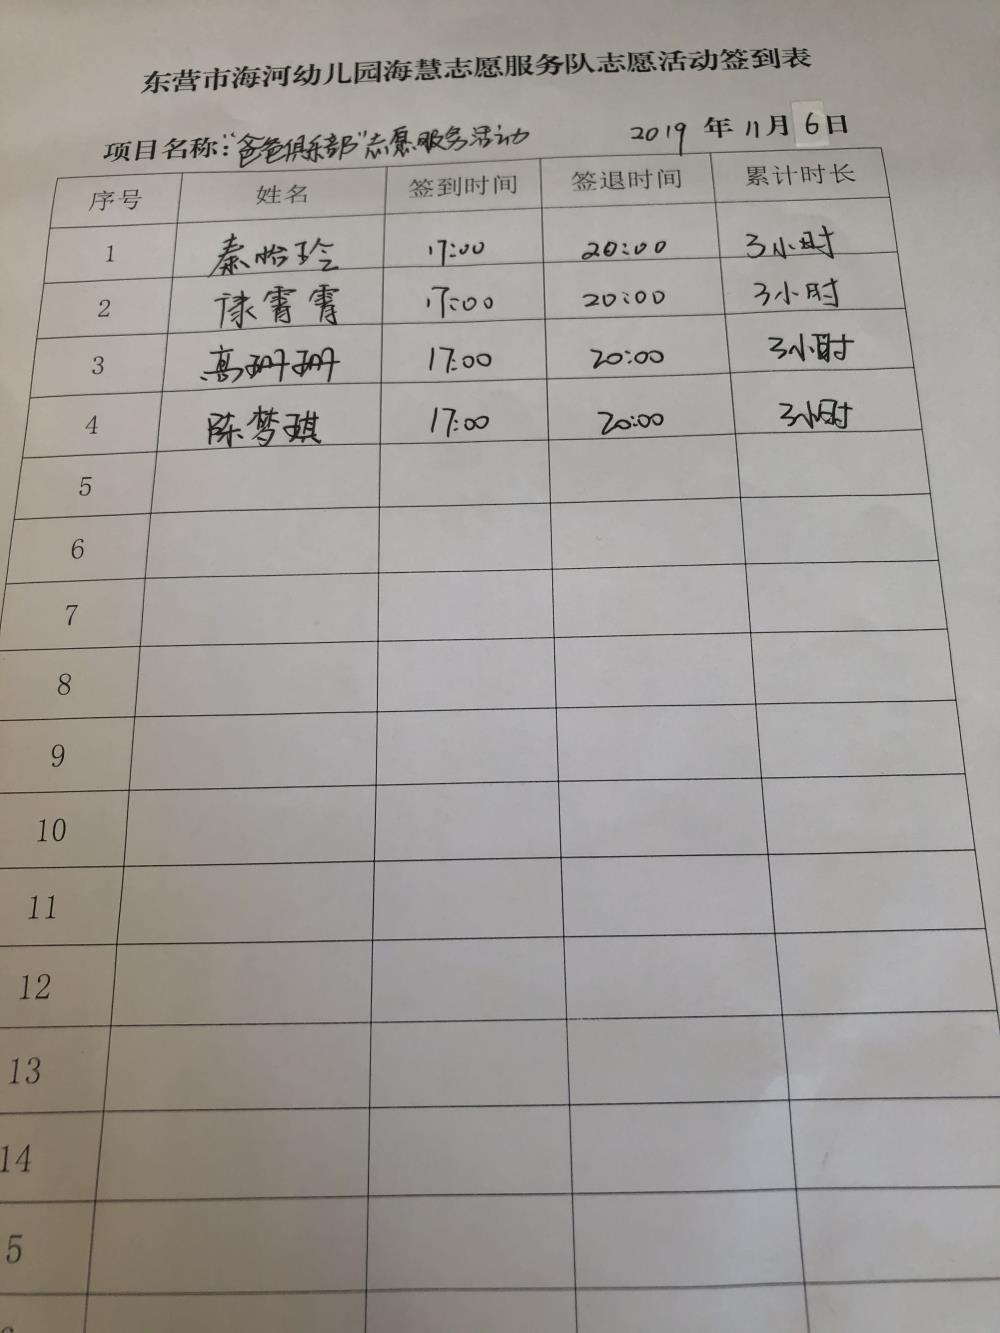 东营市海河幼儿园海慧志愿服务队志愿活动签到表
项目名称：“爸爸俱乐部”志愿服务活动 2019 年 11 月 6 日
序号 姓名 签到时间 签退时间 累计时长
1 秦怡玲 17:00 20:00 3小时
2 霄霄 17:00 20:00 3小时
3 高珊珊 17:00 20:00 3小时
4 陈梦琪 17:00 20:00 3小时
5
6
7
8
9
10
11
12
13
14
5